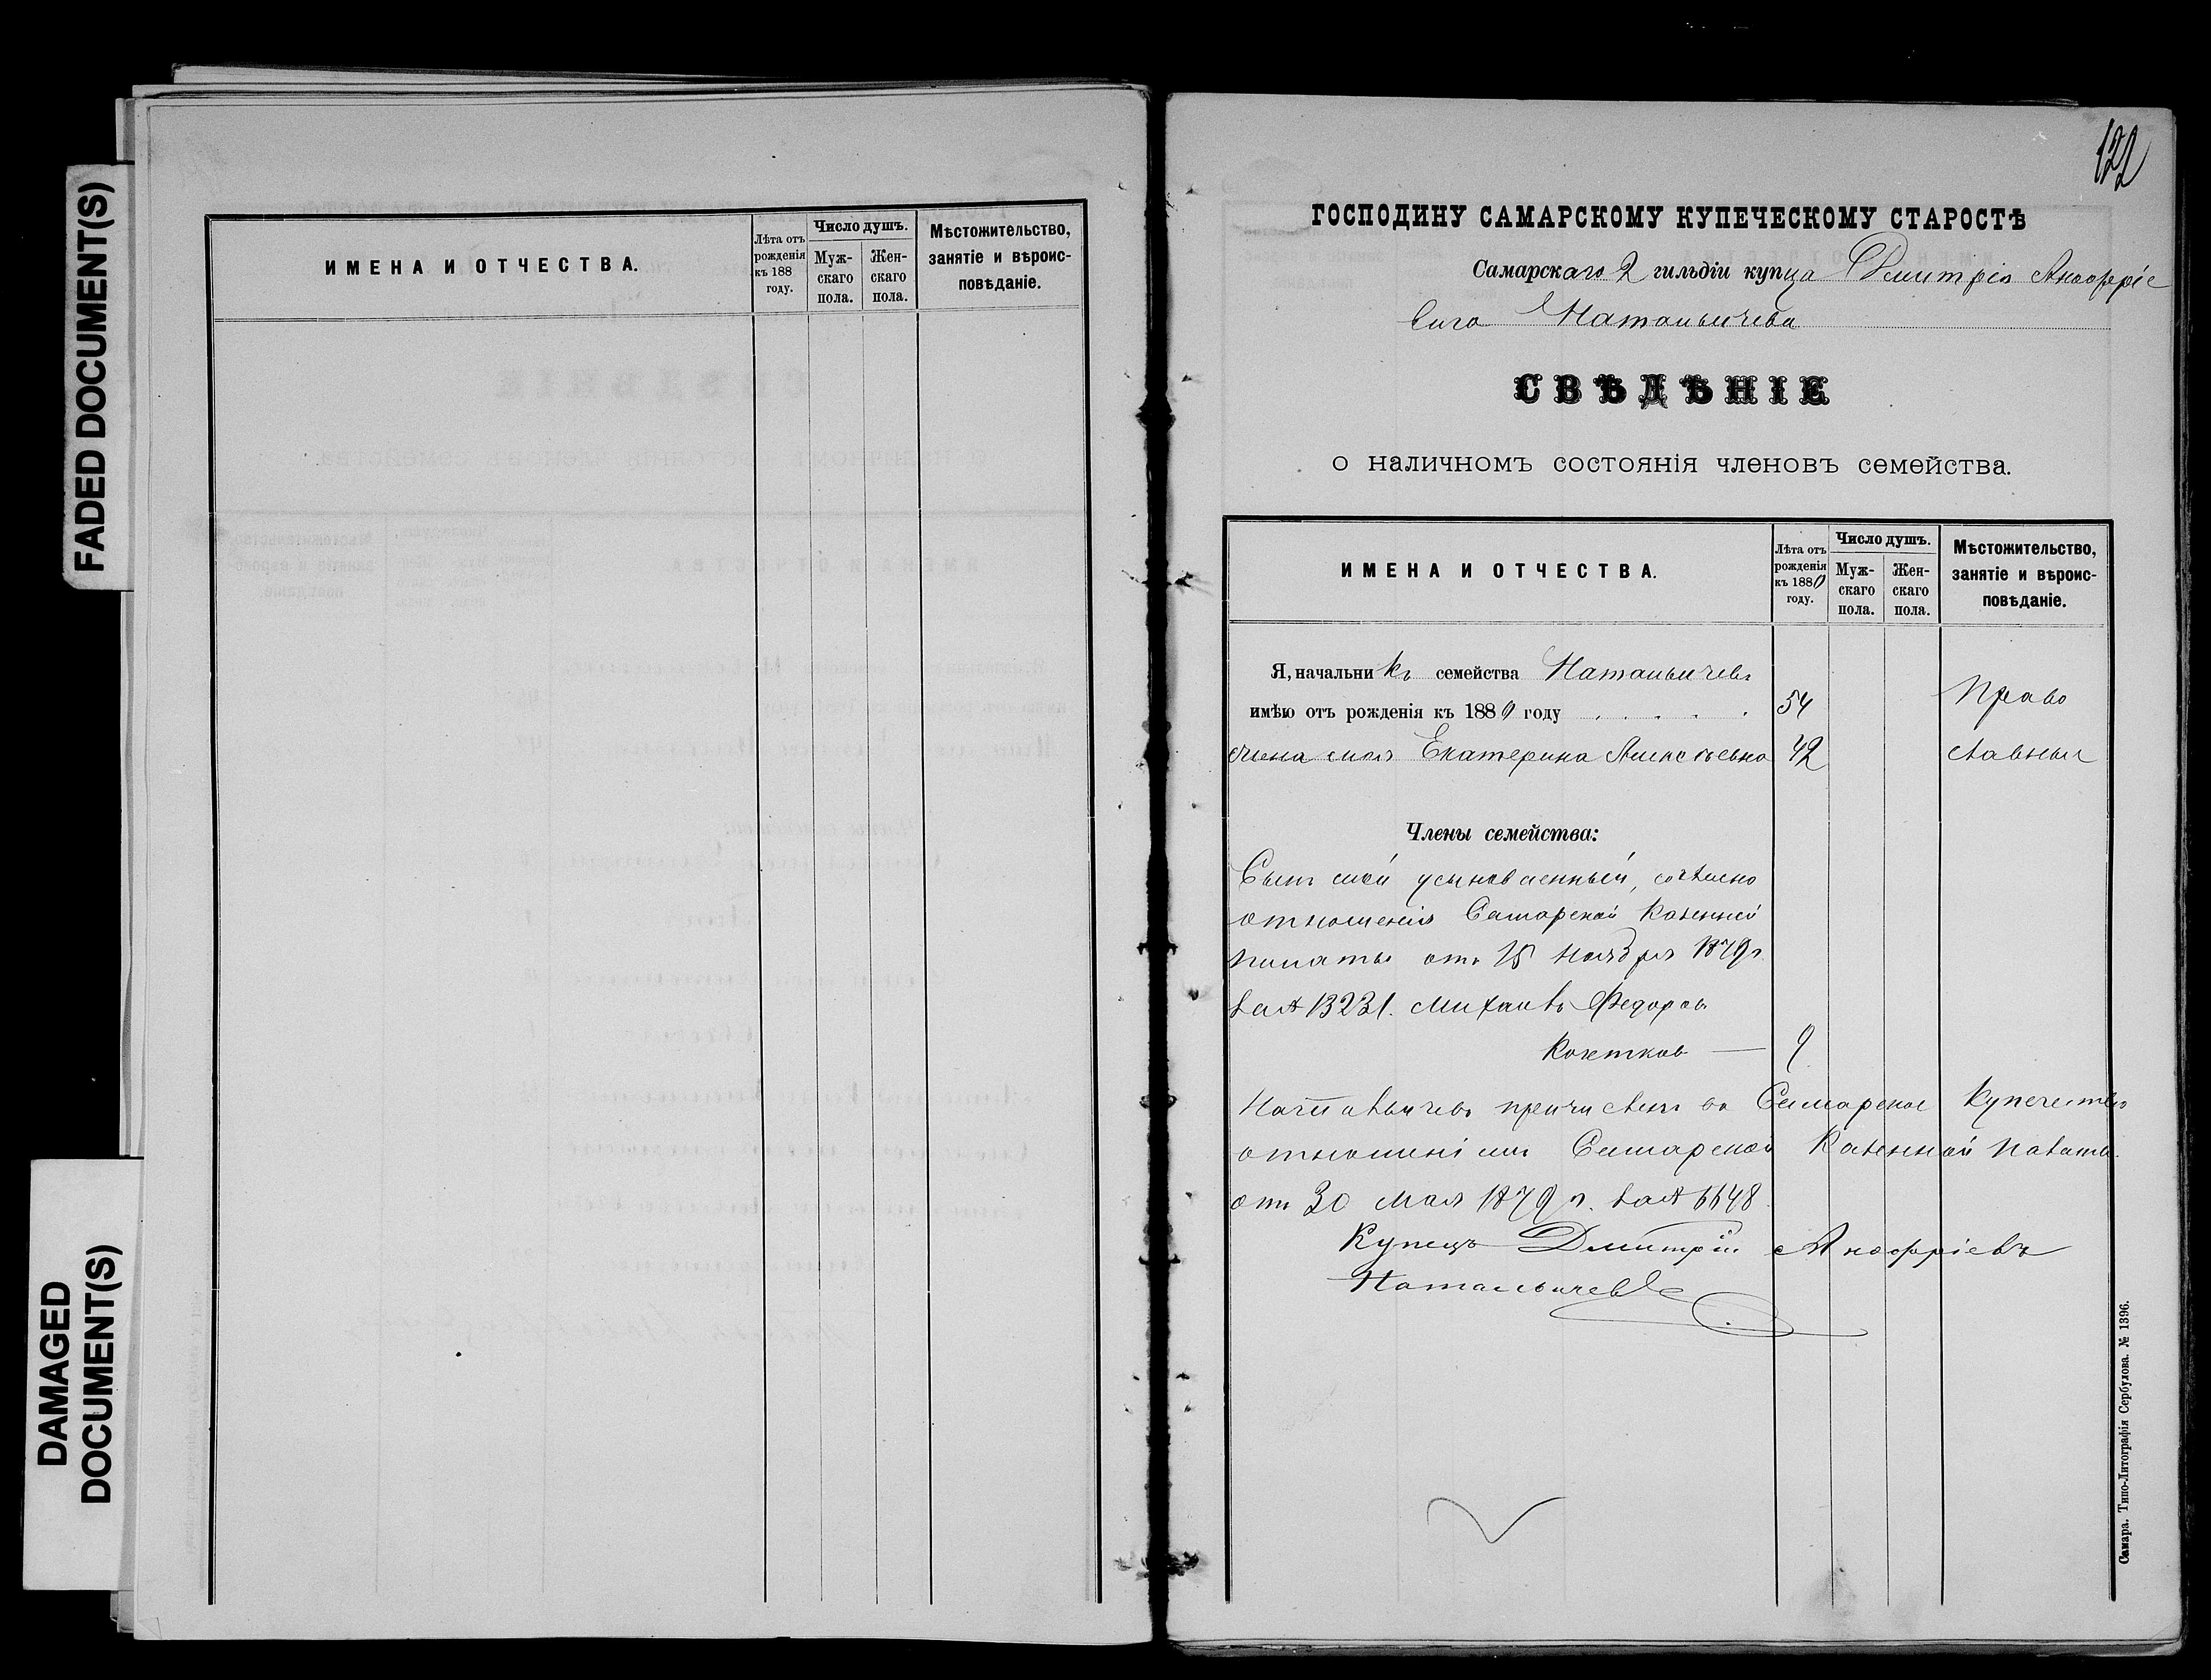 FADED DOCUMENT(S)
DAMAGED
DOCUMENT(S)
ИМЕНА И ОТЧЕСТВА.
Лѣта отъ рожденія къ 188 году.
Число душъ.
Мужскаго пола.
Женскаго пола.
Мѣстожительство, занятіе и вѣроисповѣданіе.
122
ГОСПОДИНУ САМАРСКОМУ КУПЕЧЕСКОМУ СТАРОСТѢ
Самарскаго 2 гильдіи купца Дмитрія Анофріе
вича
СВѢДѢНІЕ
о наличномъ состоянія членовъ семейства.
ИМЕНА И ОТЧЕСТВА.
Лѣта отъ рожденія къ 1889 году.
Число душъ.
Мужскаго пола.
Женскаго пола.
Мѣстожительство, занятіе и вѣроисповѣданіе.
Я, начальникъ семейства
имѣю отъ рожденія къ 1889 году . . . . . 54 Право
жена моя Екатерина Алексѣевна 42 славныя
Члены семейства:
Сынъ мой усыновленный, согласно
отношенія Самарской Казенной
палаты отъ 15 ноября 1879 г.
за № 13231. Михаилъ Федоровъ
— 9
причисленъ въ Самарское купечество
отношеніемъ Самарской Казенной палаты
отъ 30 Мая 1879 г. за № 6648.
Купецъ Дмитрій Анофріевъ
Самара. Типо-Литографія Сербулова. № 1396.